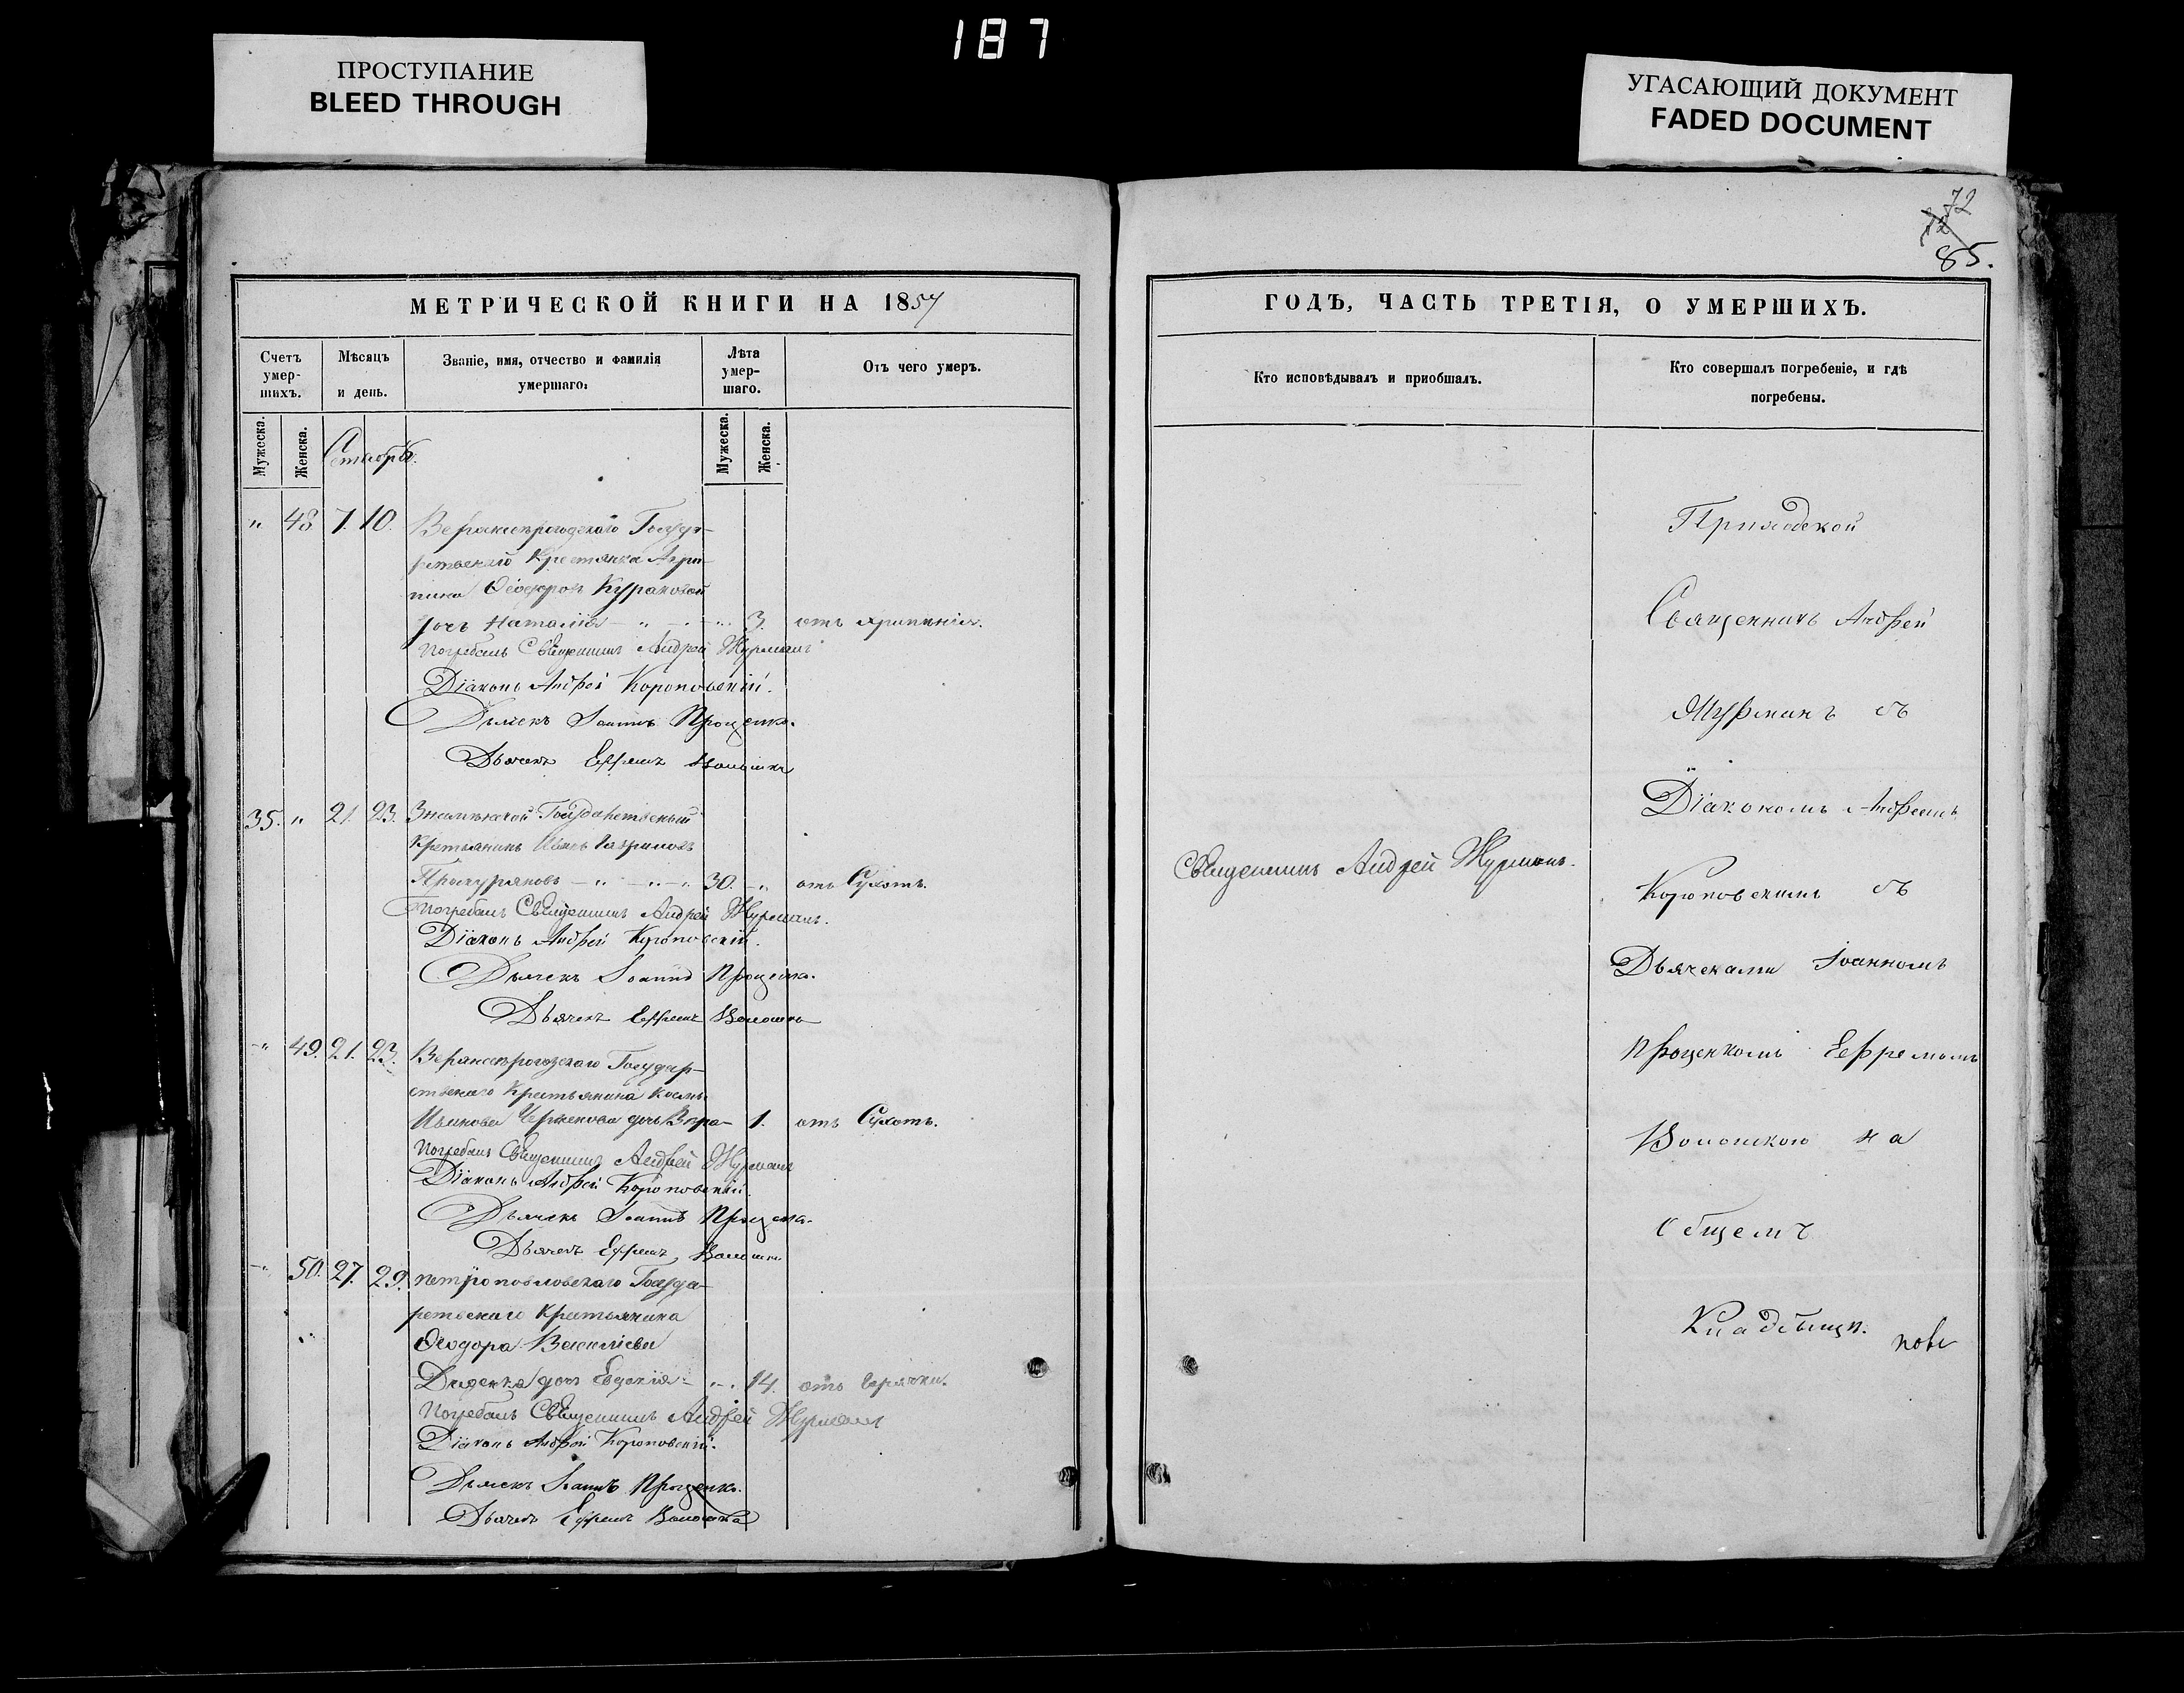 187
ПРОСТУПАНИЕ
BLEED THROUGH
УГАСАЮЩИЙ ДОКУМЕНТ
FADED DOCUMENT
72
85.
МЕТРИЧЕСКОЙ КНИГИ НА 1857
Счетъ умер-шихъ.
Мѣсяцъ и день.
Званіе, имя, отчество и фамилія умершаго.
Лѣта умер-шаго.
Отъ чего умеръ.
Мужеска.
Женска.
Мужеска.
Женска.
" 48 7. 10. Государ-
Крестьянка Агри-
пина Ѳеодоров Кураковой
дочь Наталія - " - " 3. отъ
Погребалъ Священникъ Андрей Журманъ
Діаконъ Андрей Короповскій.
Дьячекъ Іоаннъ Проценко.
Дьячекъ Ефремъ Волошка
35. " 21. 23. Знаменской Государственый
Крестьянинъ Иванъ Гавриловъ
Проскуряковъ - " - " - " 30. - " отъ Сухотъ.
Погребалъ Священникъ Андрей Журманъ.
Діаконъ Андрей Короповскій.
Дьячекъ Іоаннъ Проценко.
Дьячекъ Ефремъ Волошка
- " 49. 21. 23. Государ-
ственаго Крестьянина Космы
Иванова дочь Вѣра - 1. отъ Сухотъ.
Погребалъ Священникъ Андрей Журманъ
Діаконъ Андрей Короповскій.
Дьячекъ Іоаннъ Проценко.
Дьячекъ Ефремъ Волошка
- " 50. 27. 29. Петроповловскаго Госуда-
рственаго Крестьянина
Ѳеодора Василіева
дочь Евдокія - " - 14. отъ Горячки.
Погребалъ Священникъ Андрей Журманъ
Діаконъ Андрей Короповскій.
Дьячекъ Іоаннъ Проценко.
Дьячекъ Ефремъ Волошка
ГОДЪ, ЧАСТЬ ТРЕТІЯ, О УМЕРШИХЪ.
Кто исповѣдывалъ и приобщалъ.
Кто совершалъ погребеніе, и гдѣ погребены.
Священникъ Андрей Журманъ.
Приходской
Священникъ Андрей
Журманъ съ
Діакономъ Андреемъ
Короповскимъ съ
Дьячками Іоанномъ
Проценкомъ Ефремомъ
Волошкою на
Общемъ